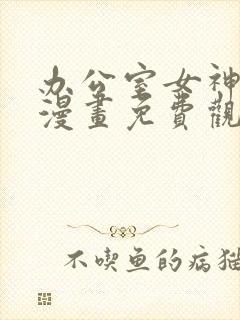 办公室女神
漫畫免費觀
不喫鱼的病猫